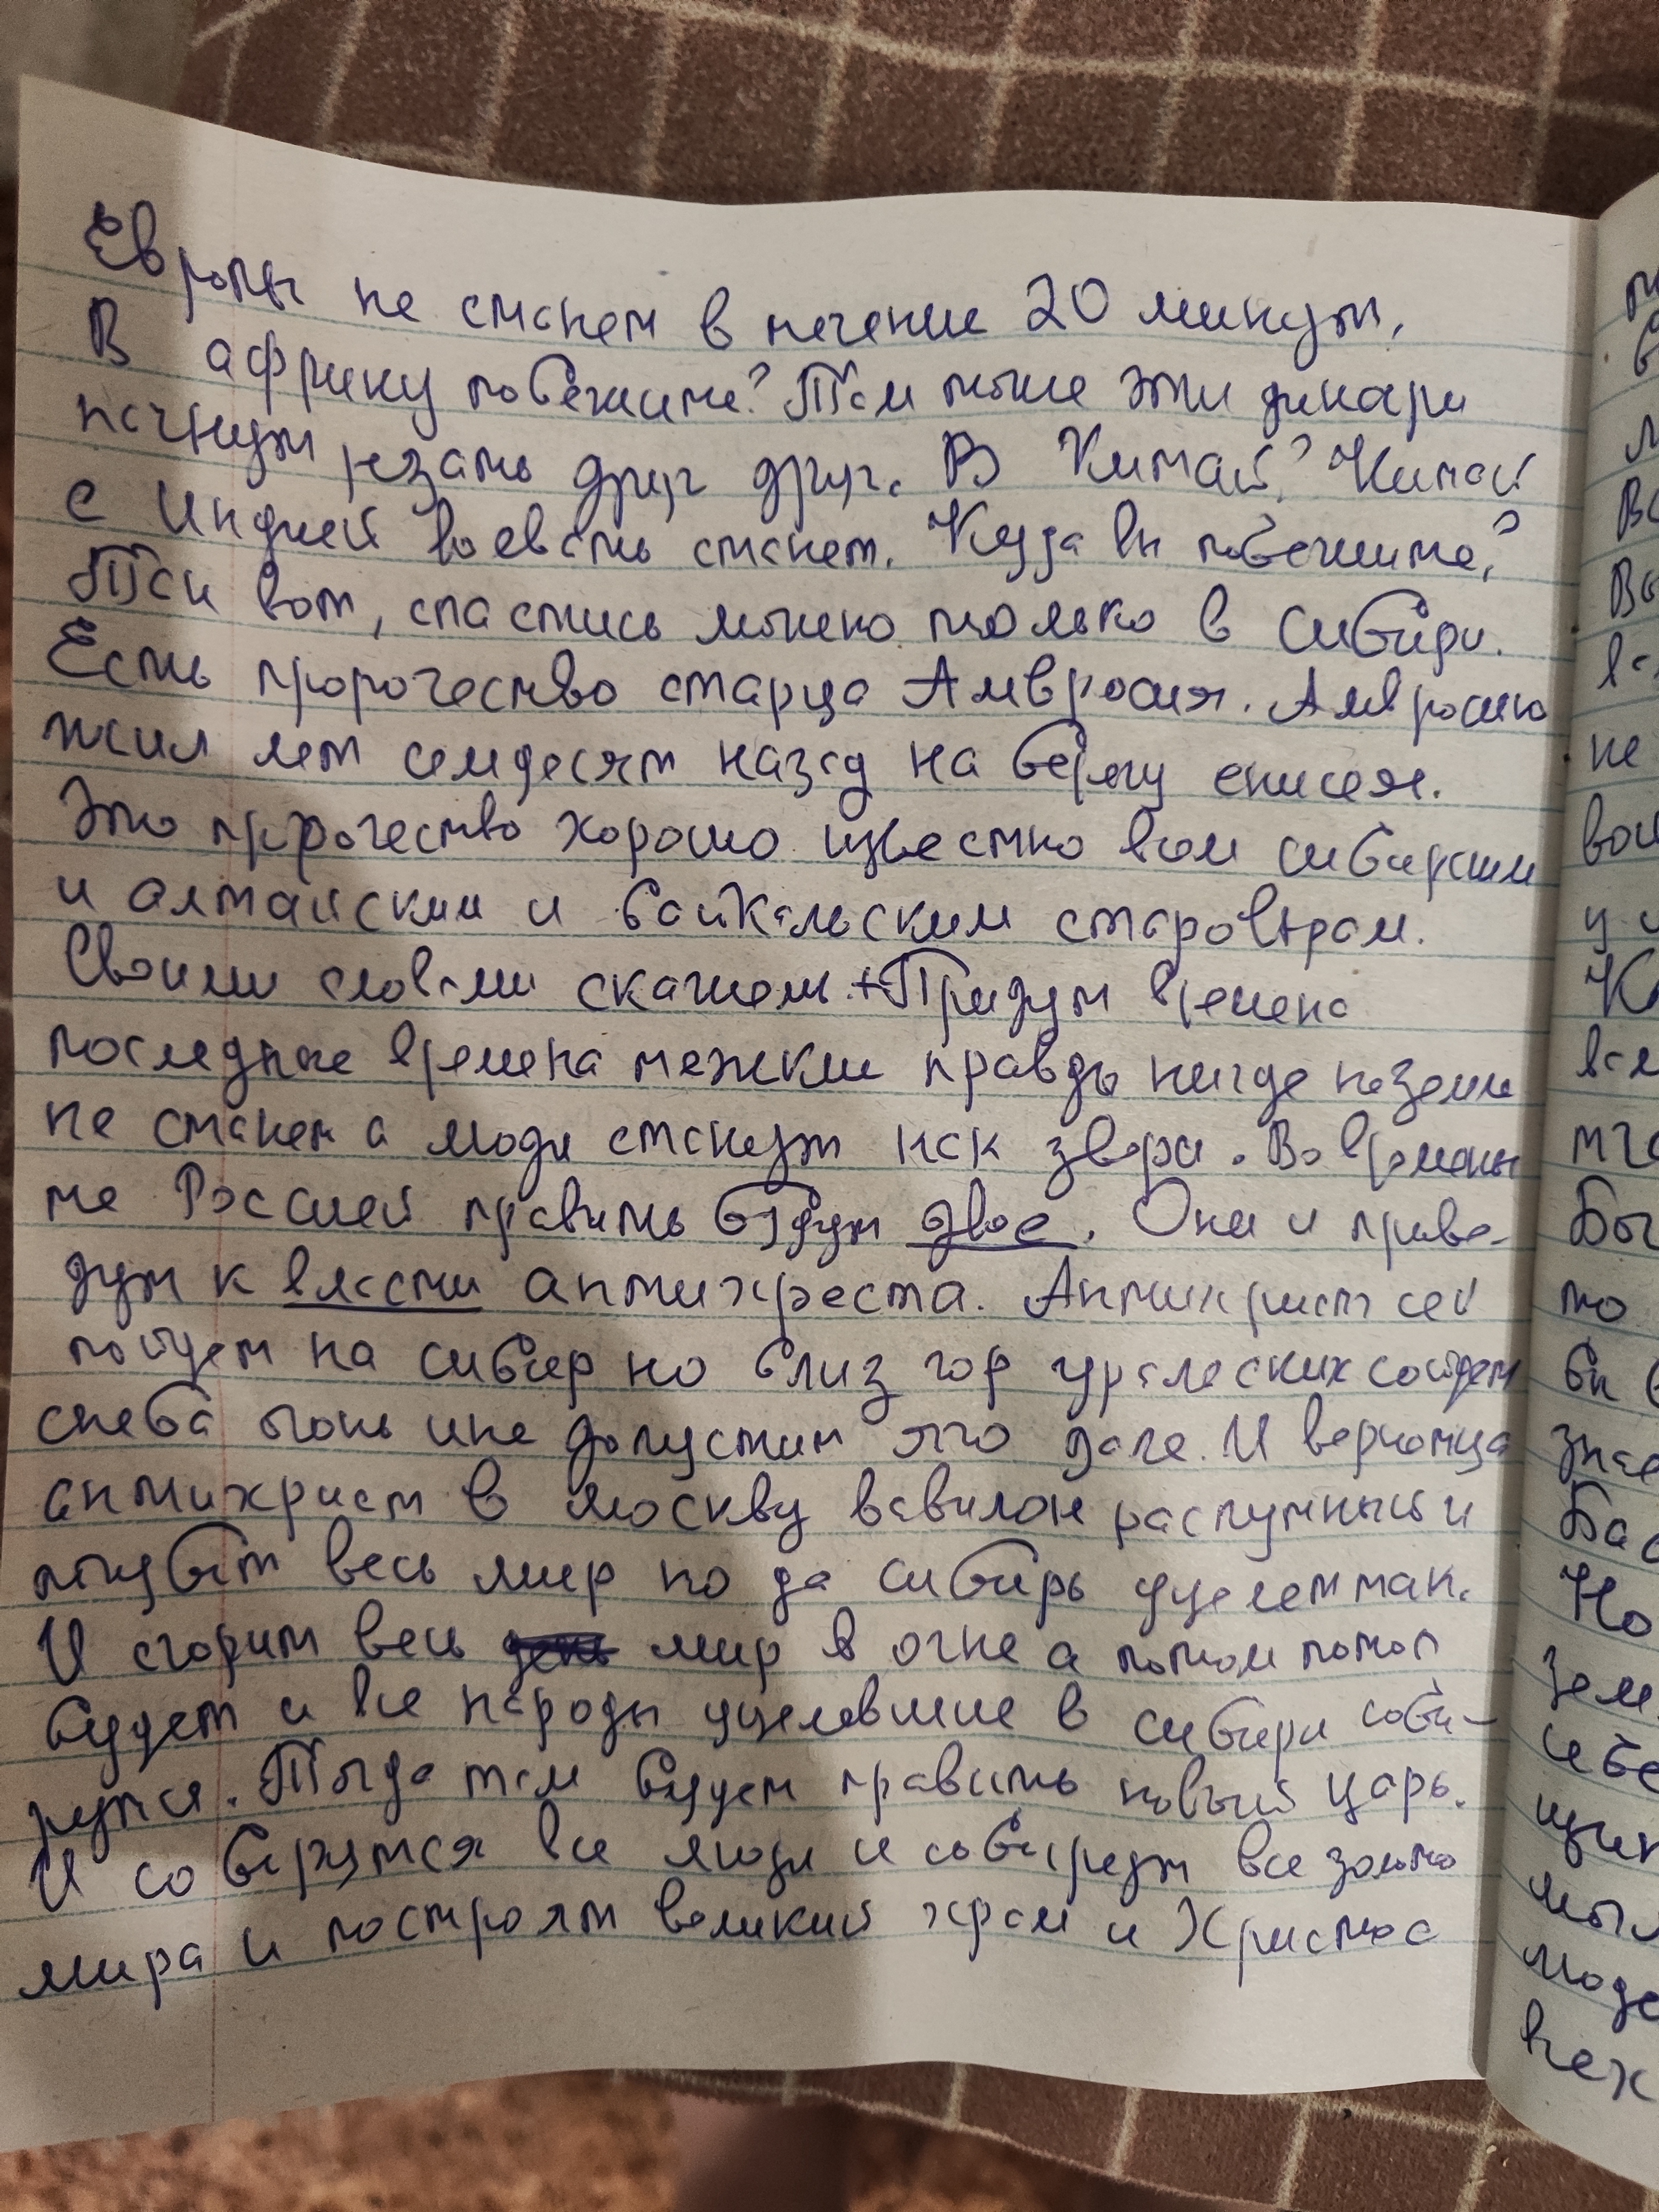 Европы не станет в течение 20 минут.
В африку побежите? Там тоже эти дикари
начнут резать друг друг. В Китай? Китай
с Индией воевать станет. Куда вы побежите?
Так вот, спастись можно только в Сибири.
Есть пророчество старца Амвросия. Амвросию
жил лет семдесят назад на берегу енисея.
Это пророчество хорошо известно всем сибирским
и алтайским и байкальским староверам.
Своими словами скажем. + Придут времена
последние времена тежкие правды нигде на земли
не станет а люди станут как звери. Во времены
те Россией править будут двое. Они и приве-
дут к власти антихреста. Антихрист сей
пойдет на сибир но близ гор уралеских сойдет
с неба огонь и не допустит его дале. И вернетца
антихрист в Москву вавилон распутный и
погубит весь мир но да сибирь уцелет так.
И сгорит весь мир в огне а потом потоп
будет и все народы уцелевшие в сибири соби-
рутся. Тогда там будет править новый царь.
И соберутся все люди и соберут все золото
мира и построят великий храм и Христос